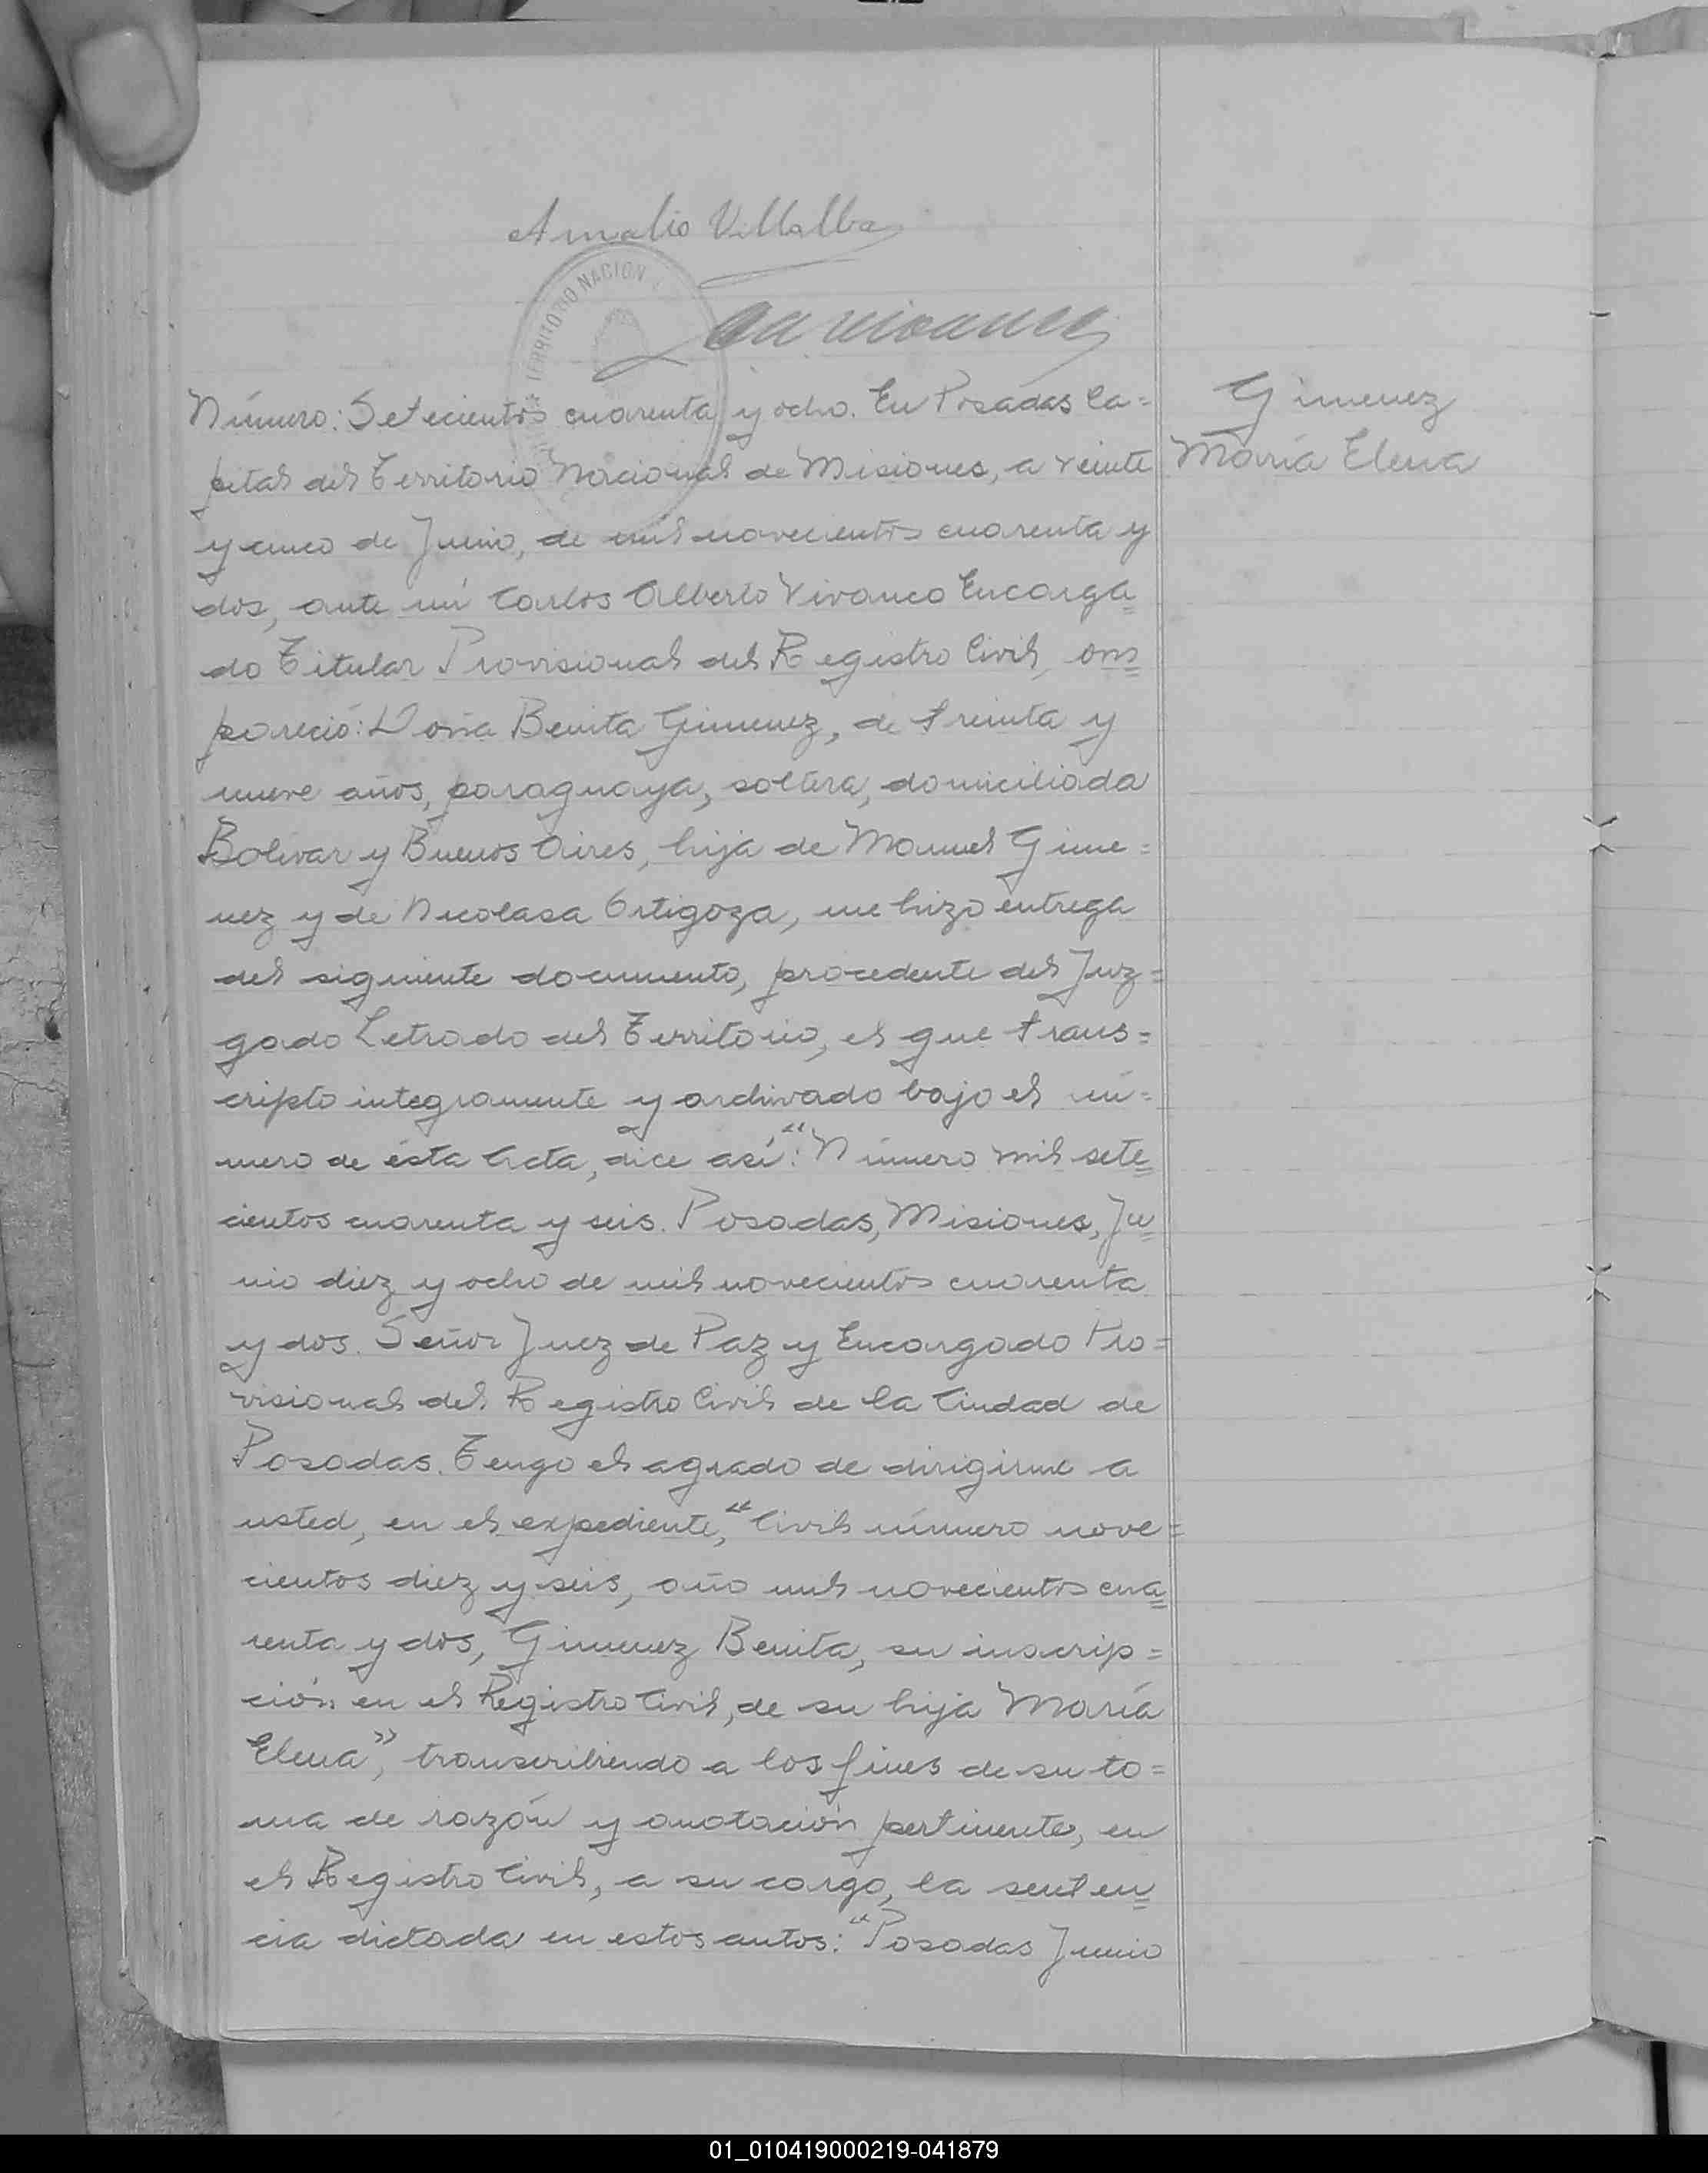 Amalio Villalba
TERRITORIO NACION
Número: Setecientos cuarenta y ocho. En Posadas Ca=
pital del Territorio Nacional de Misiones, a veinte
y cinco de Junio, de mil novecientos cuarenta y
dos, ante mí Carlos Alberto Vivanco Encarga=
do Titular Provisional del Registro Civil, com=
pareció: Doña Benita Gimenez, de treinta y
nueve años, paraguaya, soltera, domiciliada
Bolívar y Buenos Aires, hija de Manuel Gime=
nez y de Nicolasa Ortigoza, me hizo entrega
del siguiente documento, procedente del Juz=
gado Letrado del Territorio, el que trans=
cripto integramente y archivado bajo el nú=
mero de ésta Acta, dice así: "Número mil sete=
cientos cuarenta y seis. Posadas, Misiones, Ju=
nio diez y ocho de mil novecientos cuarenta
y dos. Señor Juez de Paz y Encargado Pro=
visional del Registro Civil de la Ciudad de
Posadas. Tengo el agrado de dirigirme a
usted, en el expediente, "Civil número nove=
cientos diez y seis, año mil novecientos cua=
renta y dos, Gimenez Benita, su inscrip=
ción en el Registro Civil, de su hija María
Elena", transcribiendo a los fines de su to=
ma de razón y anotación pertinente, en
el Registro Civil, a su cargo, la senten=
cia dictada en estos autos: "Posadas Junio
Gimenez
María Elena
01_010419000219-041879